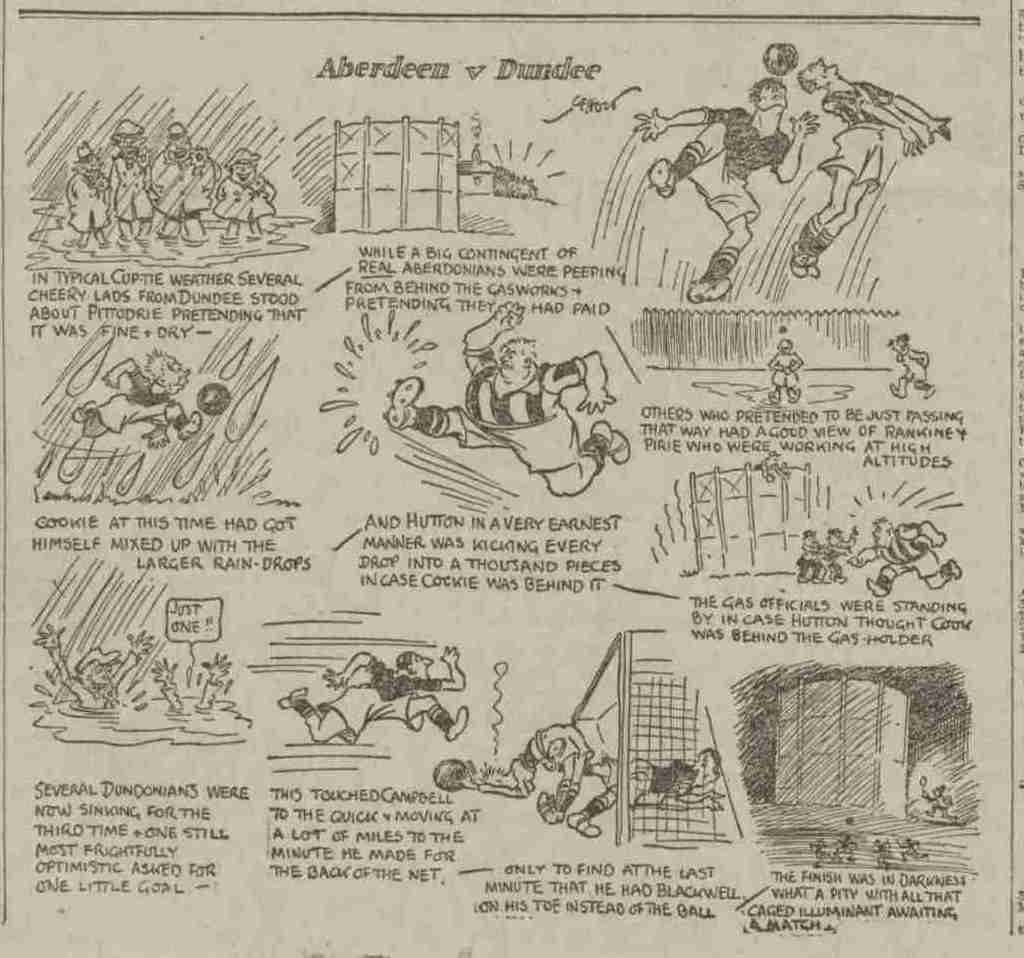 Aberdeen v Dundee
IN TYPICAL CUP-TIE WEATHER SEVERAL
CHEERY LADS FROM DUNDEE STOOD
ABOUT PITTODRIE PRETENDING THAT
IT WAS FINE + DRY —
WHILE A BIG CONTINGENT OF
REAL ABERDONIANS WERE PEEPING
FROM BEHIND THE GASWORKS +
PRETENDING THEY HAD PAID
OTHERS WHO PRETENDED TO BE JUST PASSING
THAT WAY HAD A GOOD VIEW OF RANKINE +
PIRIE WHO WERE WORKING AT HIGH
ALTITUDES
COOKIE AT THIS TIME HAD GOT
HIMSELF MIXED UP WITH THE
LARGER RAIN-DROPS
AND HUTTON IN A VERY EARNEST
MANNER WAS KICKING EVERY
DROP INTO A THOUSAND PIECES
IN CASE COOKIE WAS BEHIND IT
THE GAS OFFICIALS WERE STANDING
BY IN CASE HUTTON THOUGHT COOK
WAS BEHIND THE GAS-HOLDER
JUST
ONE!!
SEVERAL DUNDONIANS WERE
NOW SINKING FOR THE
THIRD TIME + ONE STILL
MOST FRIGHTFULLY
OPTIMISTIC ASKED FOR
ONE LITTLE GOAL —
THIS TOUCHED CAMPBELL
TO THE QUICK + MOVING AT
A LOT OF MILES TO THE
MINUTE HE MADE FOR
THE BACK OF THE NET.
ONLY TO FIND AT THE LAST
MINUTE THAT HE HAD BLACKWELL
ON HIS TOE INSTEAD OF THE BALL
THE FINISH WAS IN DARKNESS
WHAT A PITY WITH ALL THAT
CAGED ILLUMINANT AWAITING
A MATCH